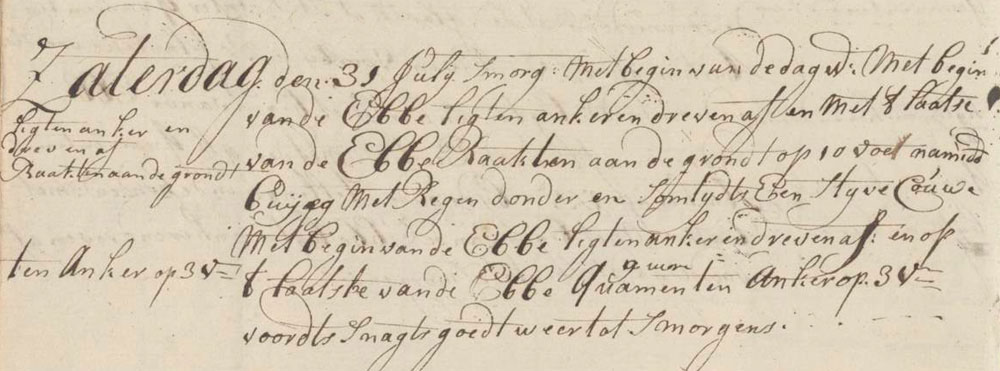 Zaterdag. den 31 Julij Smorg: Met begin van de dag W: Met begin
van de Ebbe ligten anker en dreven af en Met t laatse
van de Ebbe Raakten aan de grondt op 10 voet namidd
Buijeg Met Regen donder en Somtydts Een Styve Couwe
Met begin van de Ebbe ligten anker en dreven af: en op
t laatste van de Ebbe Quamen ten Anker op. 3 Vm
voordts Snagts goedt weer tot Smorgens.
ligten anker en
dreven af
Raakten aan de grondt
ten Anker op 3 Vm